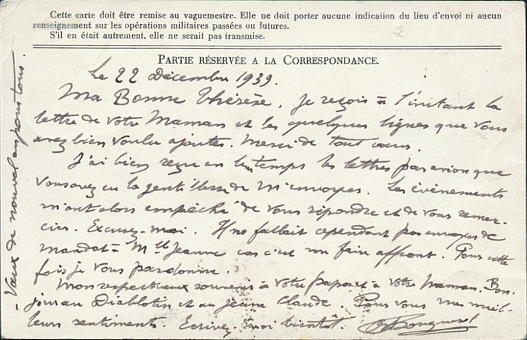 Cette carte doit être remise au vaguemestre. Elle ne doit porter aucune indication du lieu d'envoi ni aucun
renseignement sur les opérations militaires passées ou futures.
S'il en était autrement, elle ne serait pas transmise.
PARTIE RÉSERVÉE A LA CORRESPONDANCE.
Le 22 Décembre 1939.
Ma Bonne Thérèse, je reçois à l'instant la
lettre de votre Maman et les quelques lignes que vous
avez bien voulu ajouter. Merci de tout cœur.
J'ai bien reçu en son temps les lettres par avion que
vous avez eu la gentillesse de m'envoyer. Les événements
m'ont alors empêché de vous répondre et de vous remer-
cier. Excusez-moi. Il ne fallait cependant pas envoyer de
mandat à Mlle Jeanne car c'est me faire affront. Pour cette
fois je vous pardonne.
Mon respectueux souvenir à votre Papa et à votre Maman. Bon-
jour au Diablotin et au jeune Claude. Pour vous mes meil-
leurs sentiments. Ecrivez-moi bientôt.
Vœux de nouvel an pour tous.